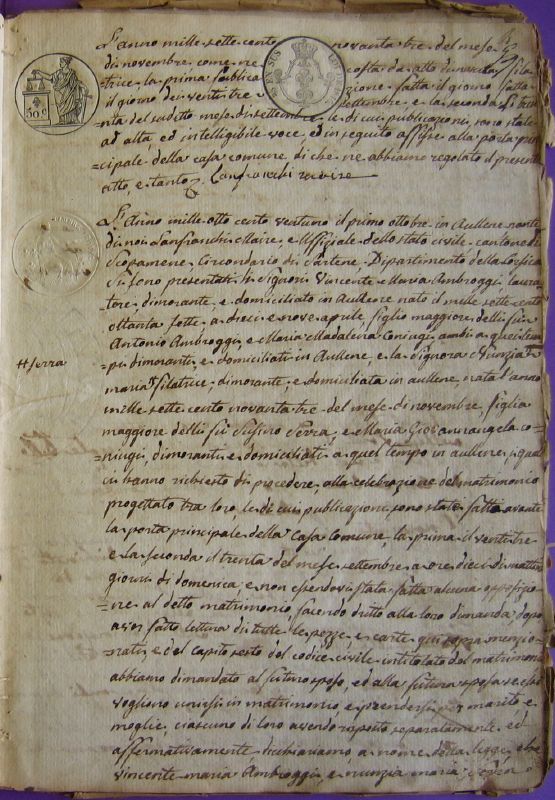 L'anno mille sette cento novanta tre del mese
di novembre come ne costa da atto di nascita fila
trice la prima publica zione fatta il giorno fatta
il giorno dei venti tre settembre e la seconda li tren
ta del sudetto mese di settembre le di cui publicazioni sono state
ad alta ed intelligibile voce, ed in seguito affisse alla porta prin
=cipale della casa comune di che ne abbiamo regolato il presente
atto e tanto Lanfranchi maire
L'Anno mille otto cento ventuno il primo ottobre in Aullene nante
di noi Lanfranchi Maire, e Uffiziale dello stato civile cantone di
Scopamene, Circondario di Sartene, Dipartimento della Corsica
si sono presentati li Signori Vincente Maria Ambroggi, lavora
tore, dimorante, e domiciliato in Aullene nato il mille sette cento
ottanta sette a dieci e nove aprile figlio maggiore delli fù
Antonio Ambroggi, e Maria Madalena coniugi ambi a quei tem
=pi dimoranti e domiciliati in Aullene e la Signora Nunzia
++ Serra
maria ++ filatrice, dimorante e domiciliata in aullene, nata l'anno
mille sette cento novanta tre del mese di novembre, figlia
maggiore delli fù Serra, e Maria Giovannangela co=
=niugi, dimoranti e domiciliati a quel tempo in aullene, i quali
ci hanno richiesto di procedere, alla celebrazione del matrimonio
progettato tra loro, le di cui publicazioni sono state fatte avante
la porta principale della Casa comune, la prima il venti tre
e la seconda il trenta del mese settembre a ore dieci di mattina
giorni di domenica e non essendovi stata fatta alcuna opposizio
=ne al detto matrimonio, facendo dritto alla loro dimanda, dopo
aver fatto lettura di tutte le pezze, e carte qui sopra menzio
=nate, e del capito sesto del codice civile intitolato del matrimonio
abbiamo dimandato al futuro sposo, ed alla futura sposa se essi
vogliono unirsi in matrimonio, e prendersi per marito e
moglie, ciascuno di loro avendo risposto separatamente ed
affermativamente dichiariamo a nome della legge, che
vincente maria Ambroggi, e nunzia maria Serra